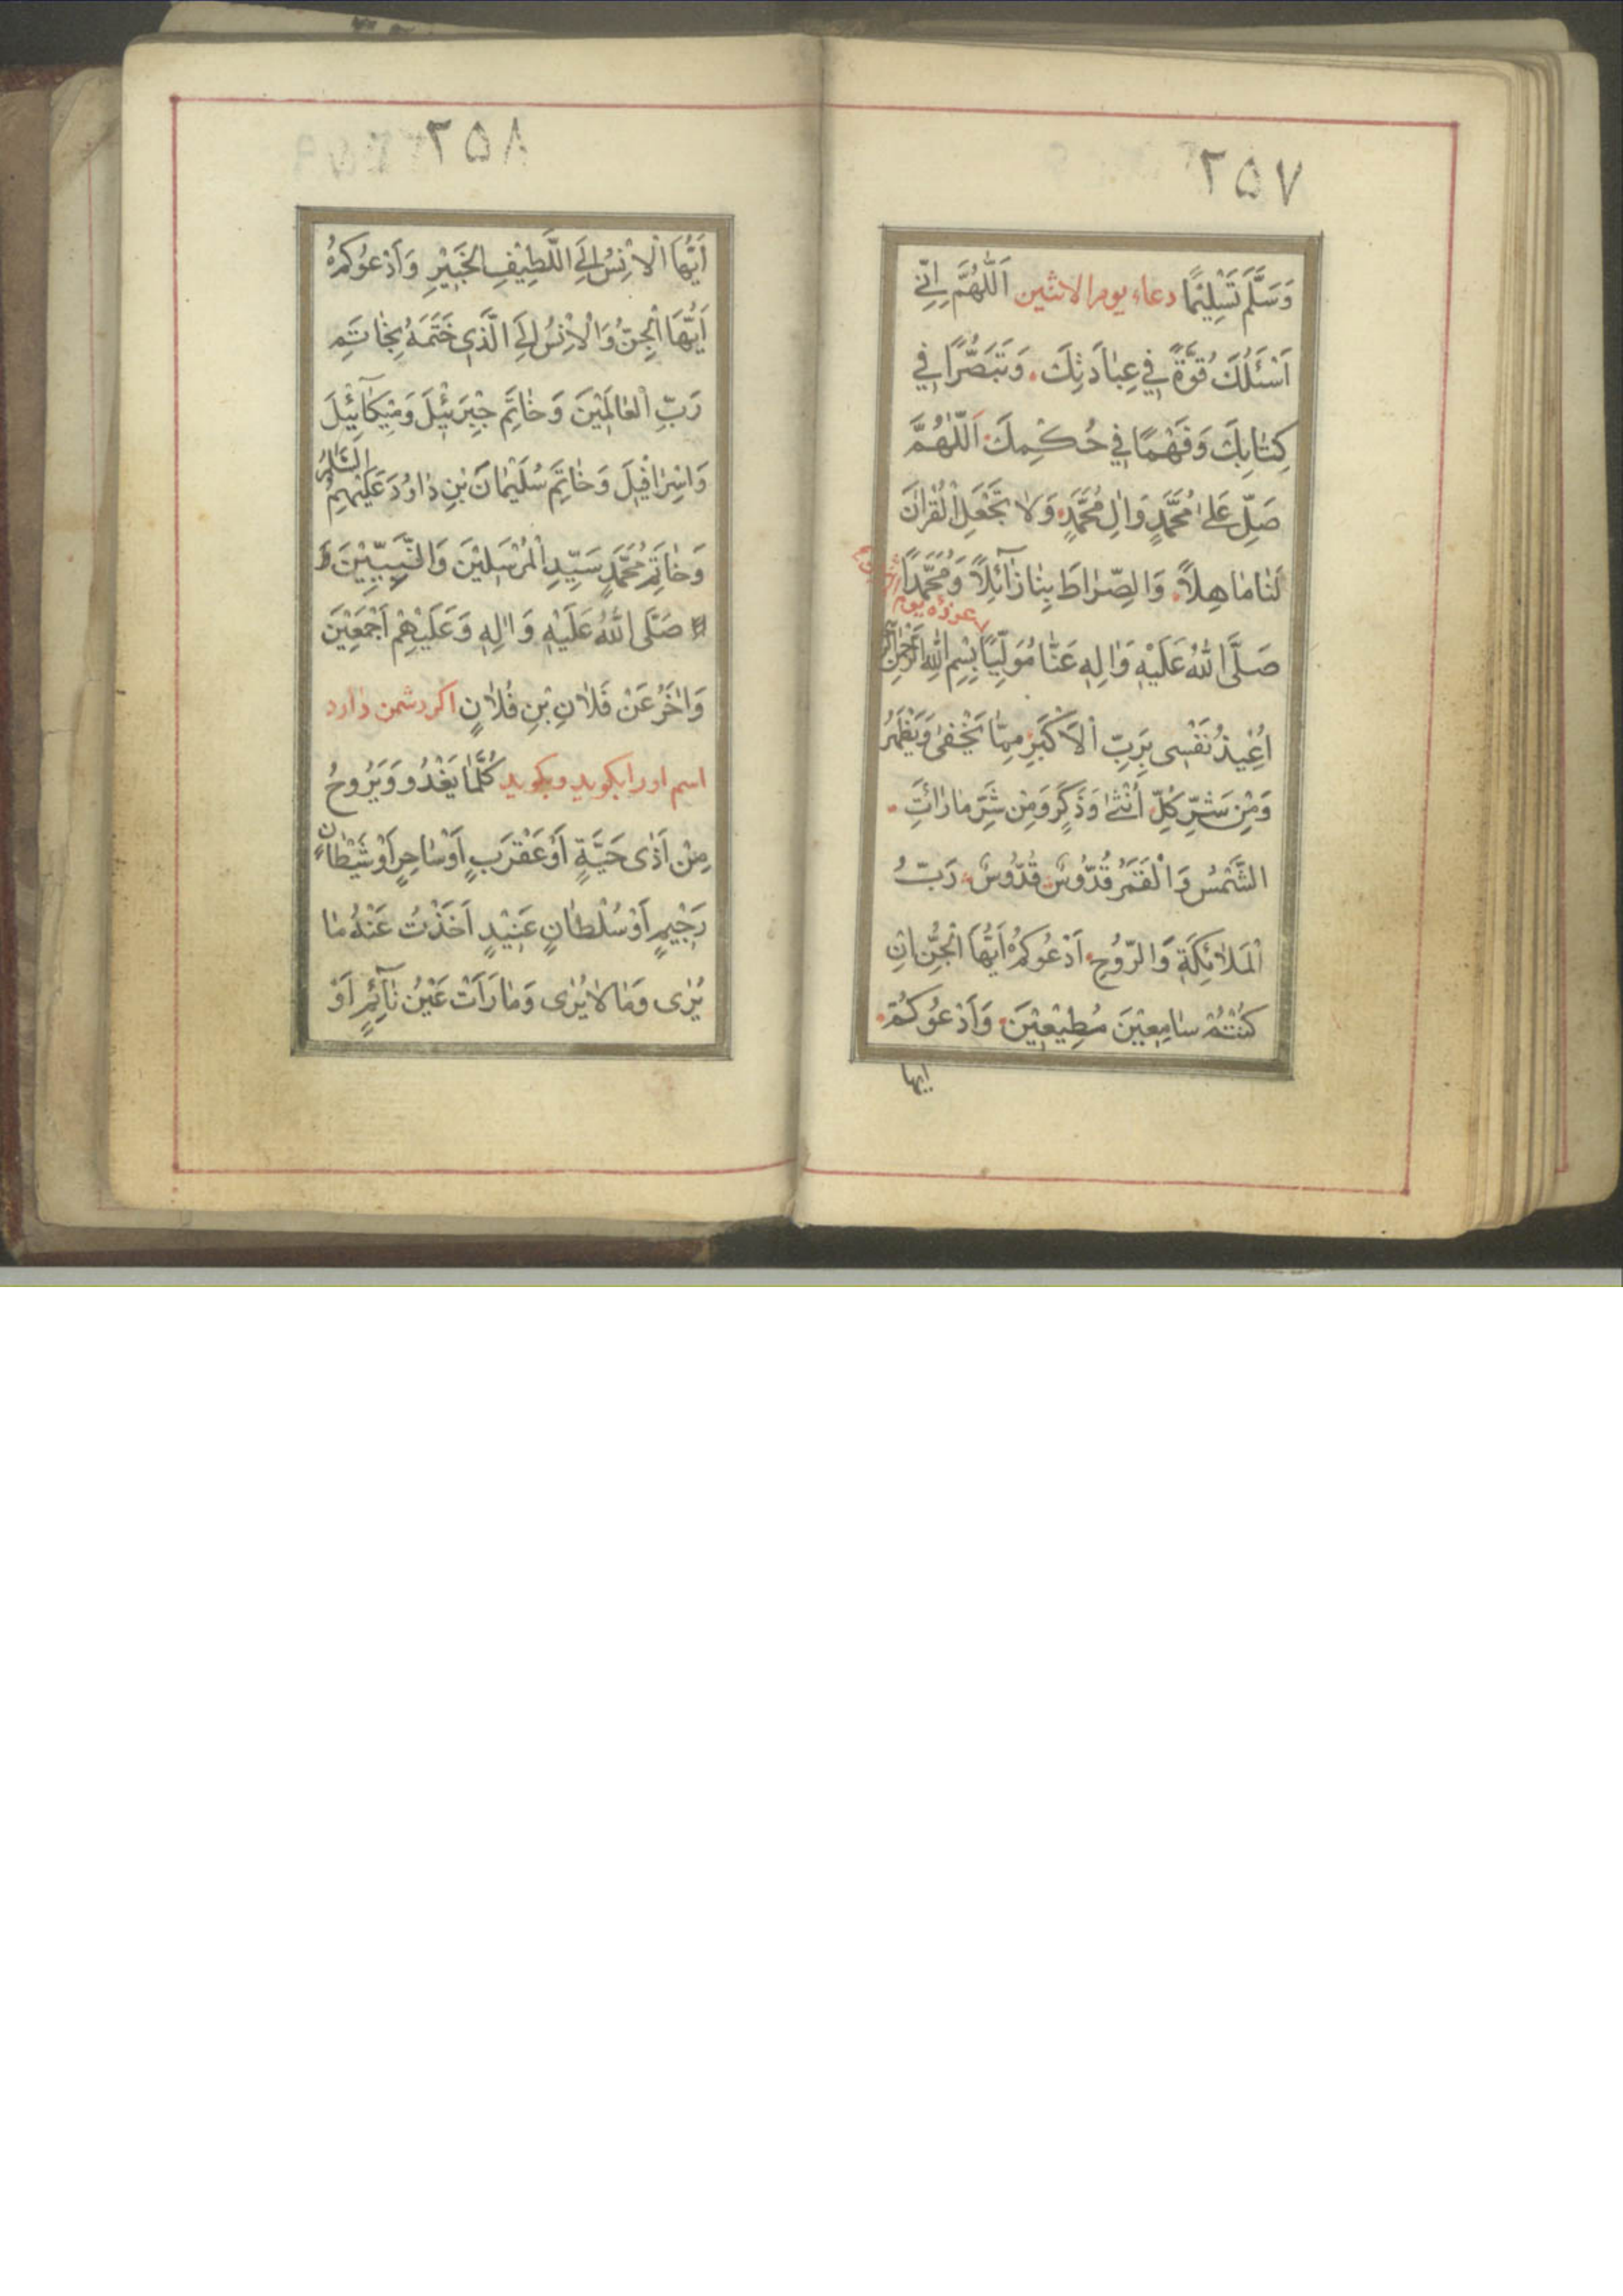 ۲۵۷
وَسَلَّمَ تَسْلِيْمًا دعاء يوم الاثنين اَللّٰهُمَّ اِنّي
اَسْئَلُكَ قُوَّةً في عِبٰادَتِكَ وَتَبَصُّرًا في
كِتٰابِكَ وَفَهْمًا في حُكْمِكَ اَللّٰهُمَّ
صَلِّ عَلىٰ مُحَمَّدٍ وَاٰلِ مُحَمَّدٍ وَلٰا تَجْعَلِ الْقُرْاٰنَ
لَنٰا مٰاحِلاً وَالصِّرٰاطَ بِنٰا زٰآئِلاً وَمُحَمَّدًا
عوذه يوم
صَلَّى اللّٰهُ عَلَيْهِ وَاٰلِهِ عَنّٰا مُوَلِّيًا بِسْمِ اللّٰهِ الرَّحْمٰنِ
اُعِيْذُ نَفْسِى بِرَبِّ الْاَكْبَرِ مِمّٰا يَخْفىٰ وَيَظْهَرُ
وَمِنْ شَرِّ كُلِّ اُنْثىٰ وَذَكَرٍ وَمِنْ شَرِّ مٰا رَاَتِ
الشَّمْسُ وَالْقَمَرُ قُدُّوسٌ قُدُّوسٌ رَبُّ
الْمَلٰائِكَةِ وَالرُّوحِ اَدْعُوكُمْ اَيُّهَا الْجِنُّ اِنْ
كُنْتُمْ سٰامِعِيْنَ مُطِيْعِيْنَ وَاَدْعُوكُمْ
ايها
۲۵۸
اَيُّهَا الْاِنْسُ اِلَى اللَّطِيْفِ الخَبِيْرِ وَاَدْعُوكُمْ
اَيُّهَا الْجِنُّ وَالْاِنْسُ اِلَى الَّذى خَتَمَهُ بِخٰاتَمِ
رَبِّ الْعٰالَمِيْنَ وَخٰاتَمِ جِبْرَئِيْلَ وَمِيْكٰآئِيْلَ
وَاِسْرٰافِيْلَ وَخٰاتَمِ سُلَيْمٰانَ بْنِ دٰاوُدَ عَلَيْهِمُ السَّلٰامُ
وَخٰاتَمِ مُحَمَّدٍ سَيِّدِ الْمُرْسَلِيْنَ وَالنَّبِيِّيْنَ
صَلَّى اللّٰهُ عَلَيْهِ وَاٰلِهِ وَعَلَيْهِمْ اَجْمَعِيْنَ
وَاَخِّرْ عَنْ فُلٰانِ بْنِ فُلٰانٍ اكر دشمن دارد
اسم اورا بكويد وبكويد كُلَّمٰا يَغْدُو وَيَرُوحُ
مِنْ اَذٰى حَيَّةٍ اَوْ عَقْرَبٍ اَوْ سٰاحِرٍ اَوْ شَيْطٰانٍ
رَجِيْمٍ اَوْ سُلْطٰانٍ عَنِيْدٍ اَخَذْتُ عَنْهُ مٰا
يُرٰى وَمٰا لٰا يُرٰى وَمٰا رَاَتْ عَيْنُ نٰآئِمٍ اَوْ